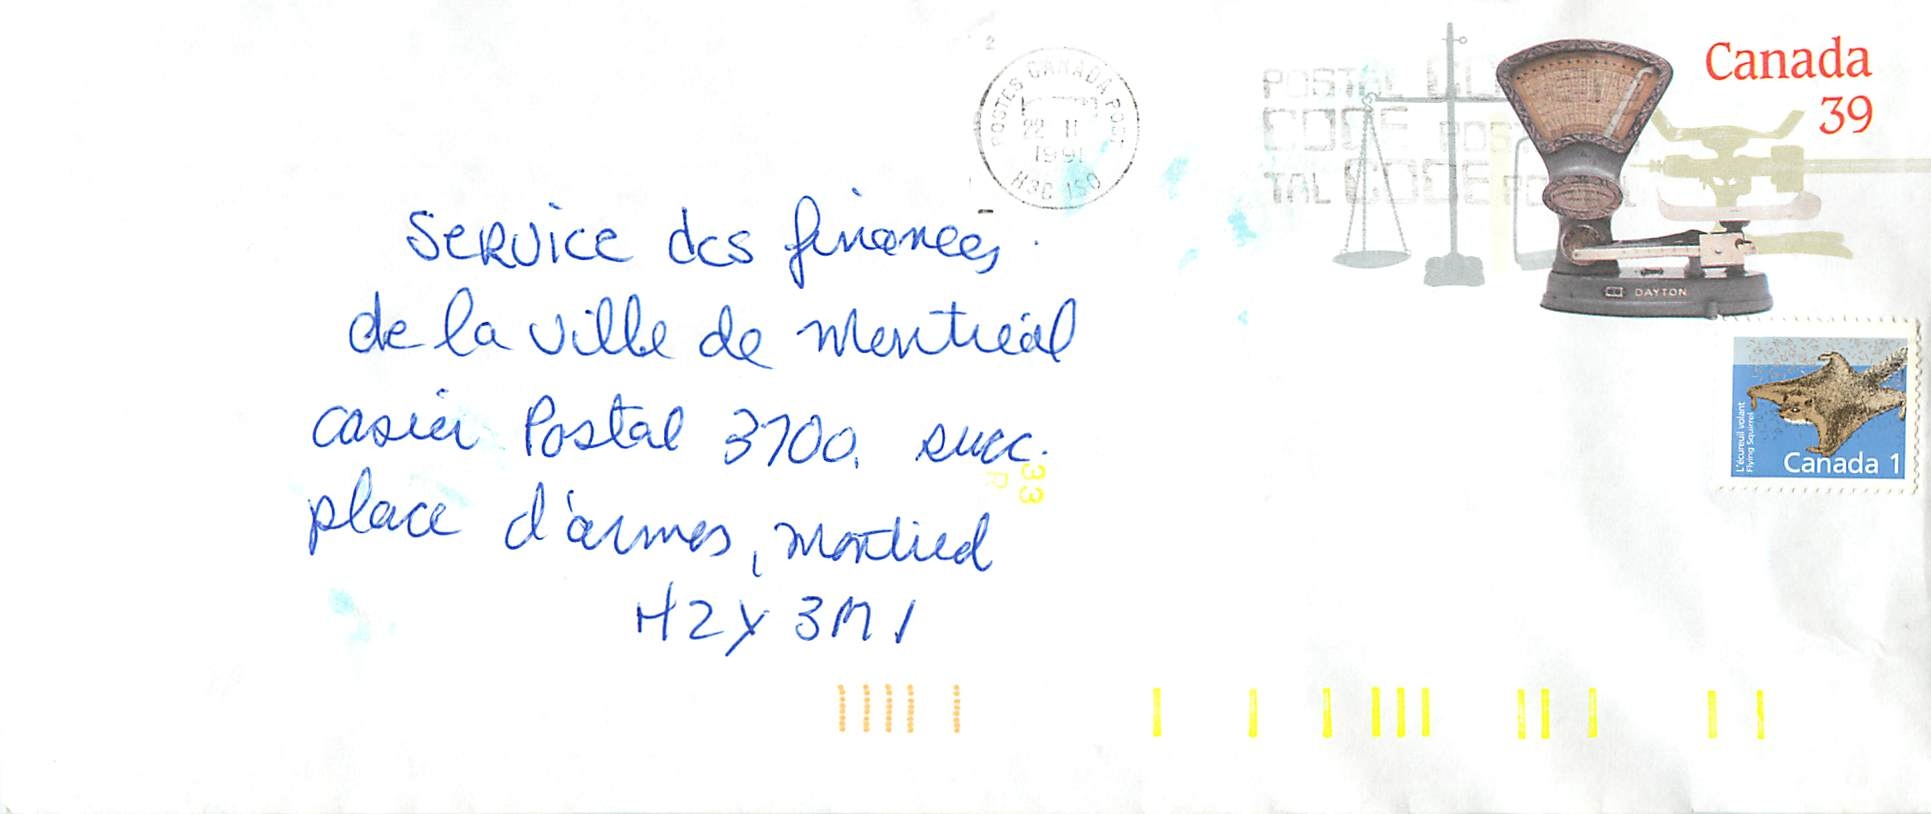 POSTES CANADA POST
22 II
1991
H3C 1S0
POSTAL CODE
CODE POSTAL
CODE POSTAL
Canada
39
DAYTON
Service des finances
de la ville de Montréal
casier Postal 3700, succ.
place d'armes, Montréal
H2Y 3M1
33
R
L'écureuil volant
Flying Squirrel
Canada 1